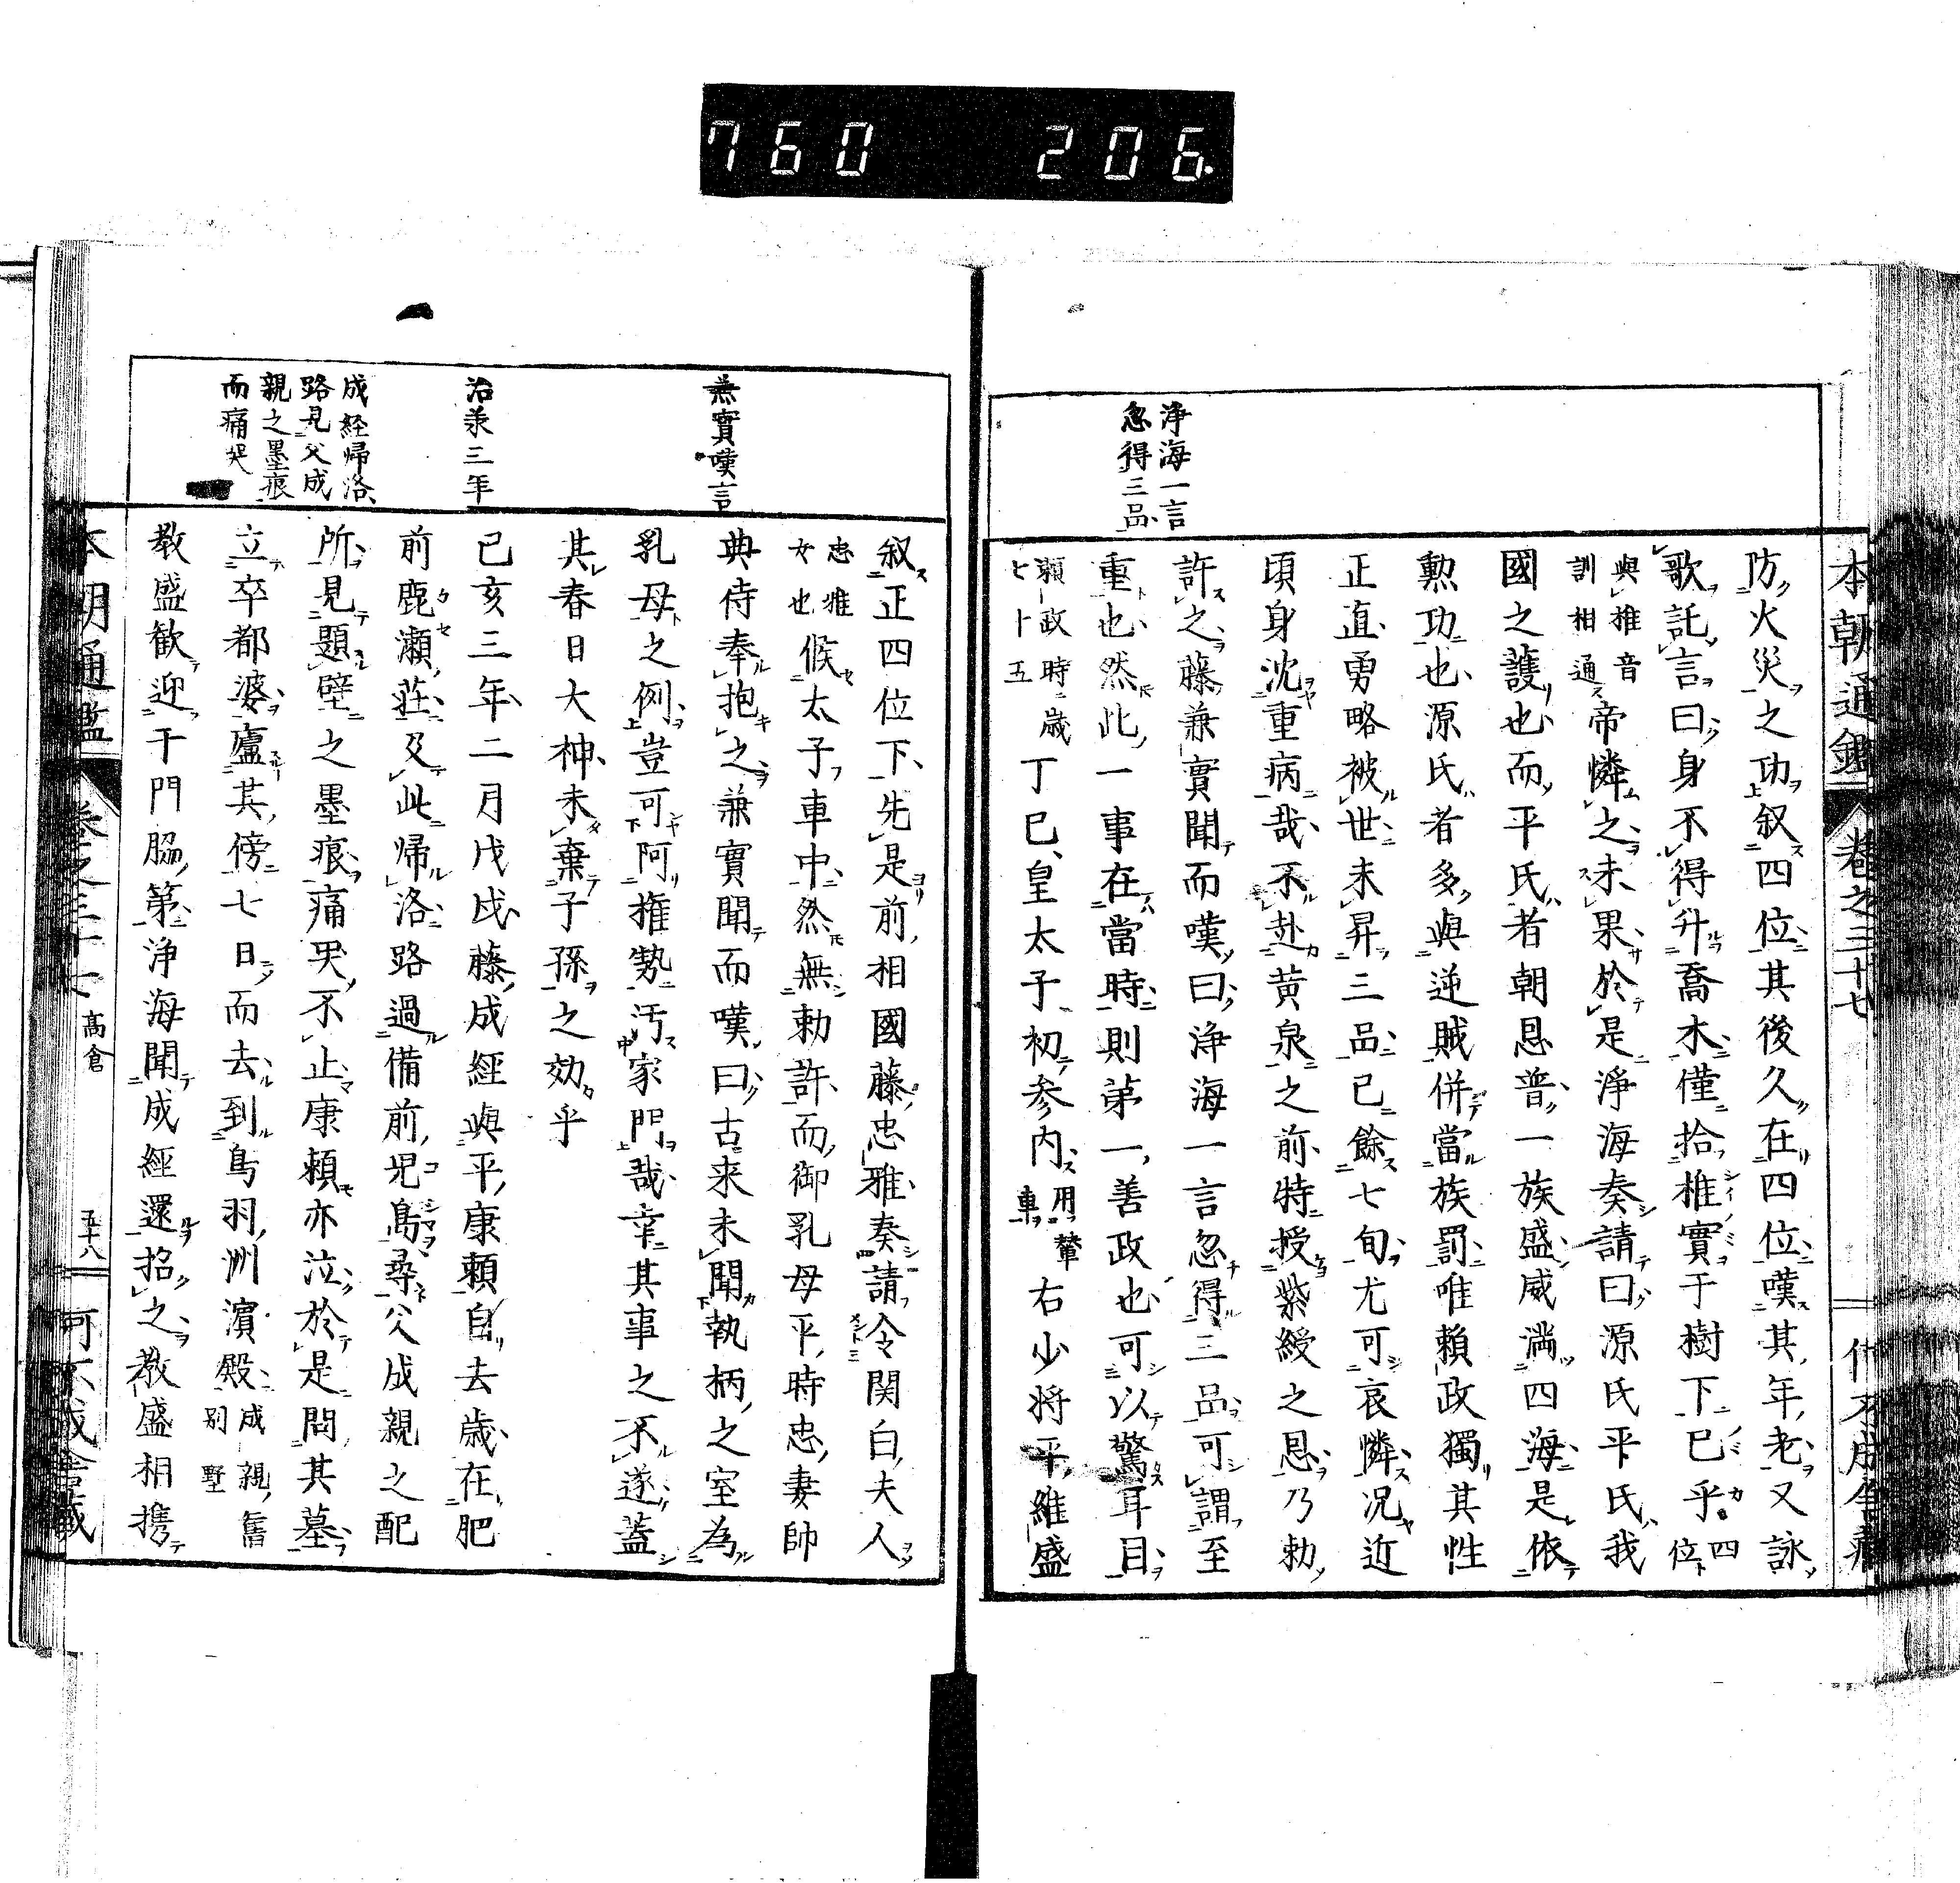 760 206.
本朝通鑑 卷之三十七
淨海一言
忽得三品
防火災之功叙四位其後久在四位嘆其年老又詠
歌託言曰身不得升喬木僅拾椎實于樹下巳乎四位
與椎音訓相通帝憐之未果於是淨海奏請曰源氏平氏我
國之護也而平氏者朝恩普一族盛威満四海是依
勲功也源氏者多與逆賊併當族罰唯頼政獨其性
正直勇略被世未昇三品已餘七旬尤可哀憐况近
頃身沈重病哉不赴黄泉之前特授紫綬之恩乃勅
許之藤兼實聞而嘆曰浄海一言忽得三品可謂至
重也然此一事在當時則第一善政也可以驚耳目
頼政時歳七十五丁巳皇太子初参内用輦車右少将平維盛
兼實嘆言
治承三年
成経帰洛
路見父成
親之墨痕
而痛哭
叙正四位下先是前相國藤忠雅奏請令関白夫人
忠雅女也候太子車中然無勅許而御乳母平時忠妻帥
典侍奉抱之兼實聞而嘆曰古来未聞執柄之室為
乳母之例豈可阿權勢汚家門哉幸其事之不遂蓋
其春日大神未棄子孫之効乎
己亥三年二月戊戌藤成經與平康頼自去歳在肥
前鹿瀬莊及此帰洛路過備前児島尋父成親之配
所見題壁之墨痕痛哭不止康頼亦泣於是問其墓
立卒都婆廬其傍七日而去到鳥羽洲濵殿成親舊別墅
教盛歓迎于門脇第浄海聞成經還招之教盛相携
本朝通鑑 卷之三十七 高倉 五十八